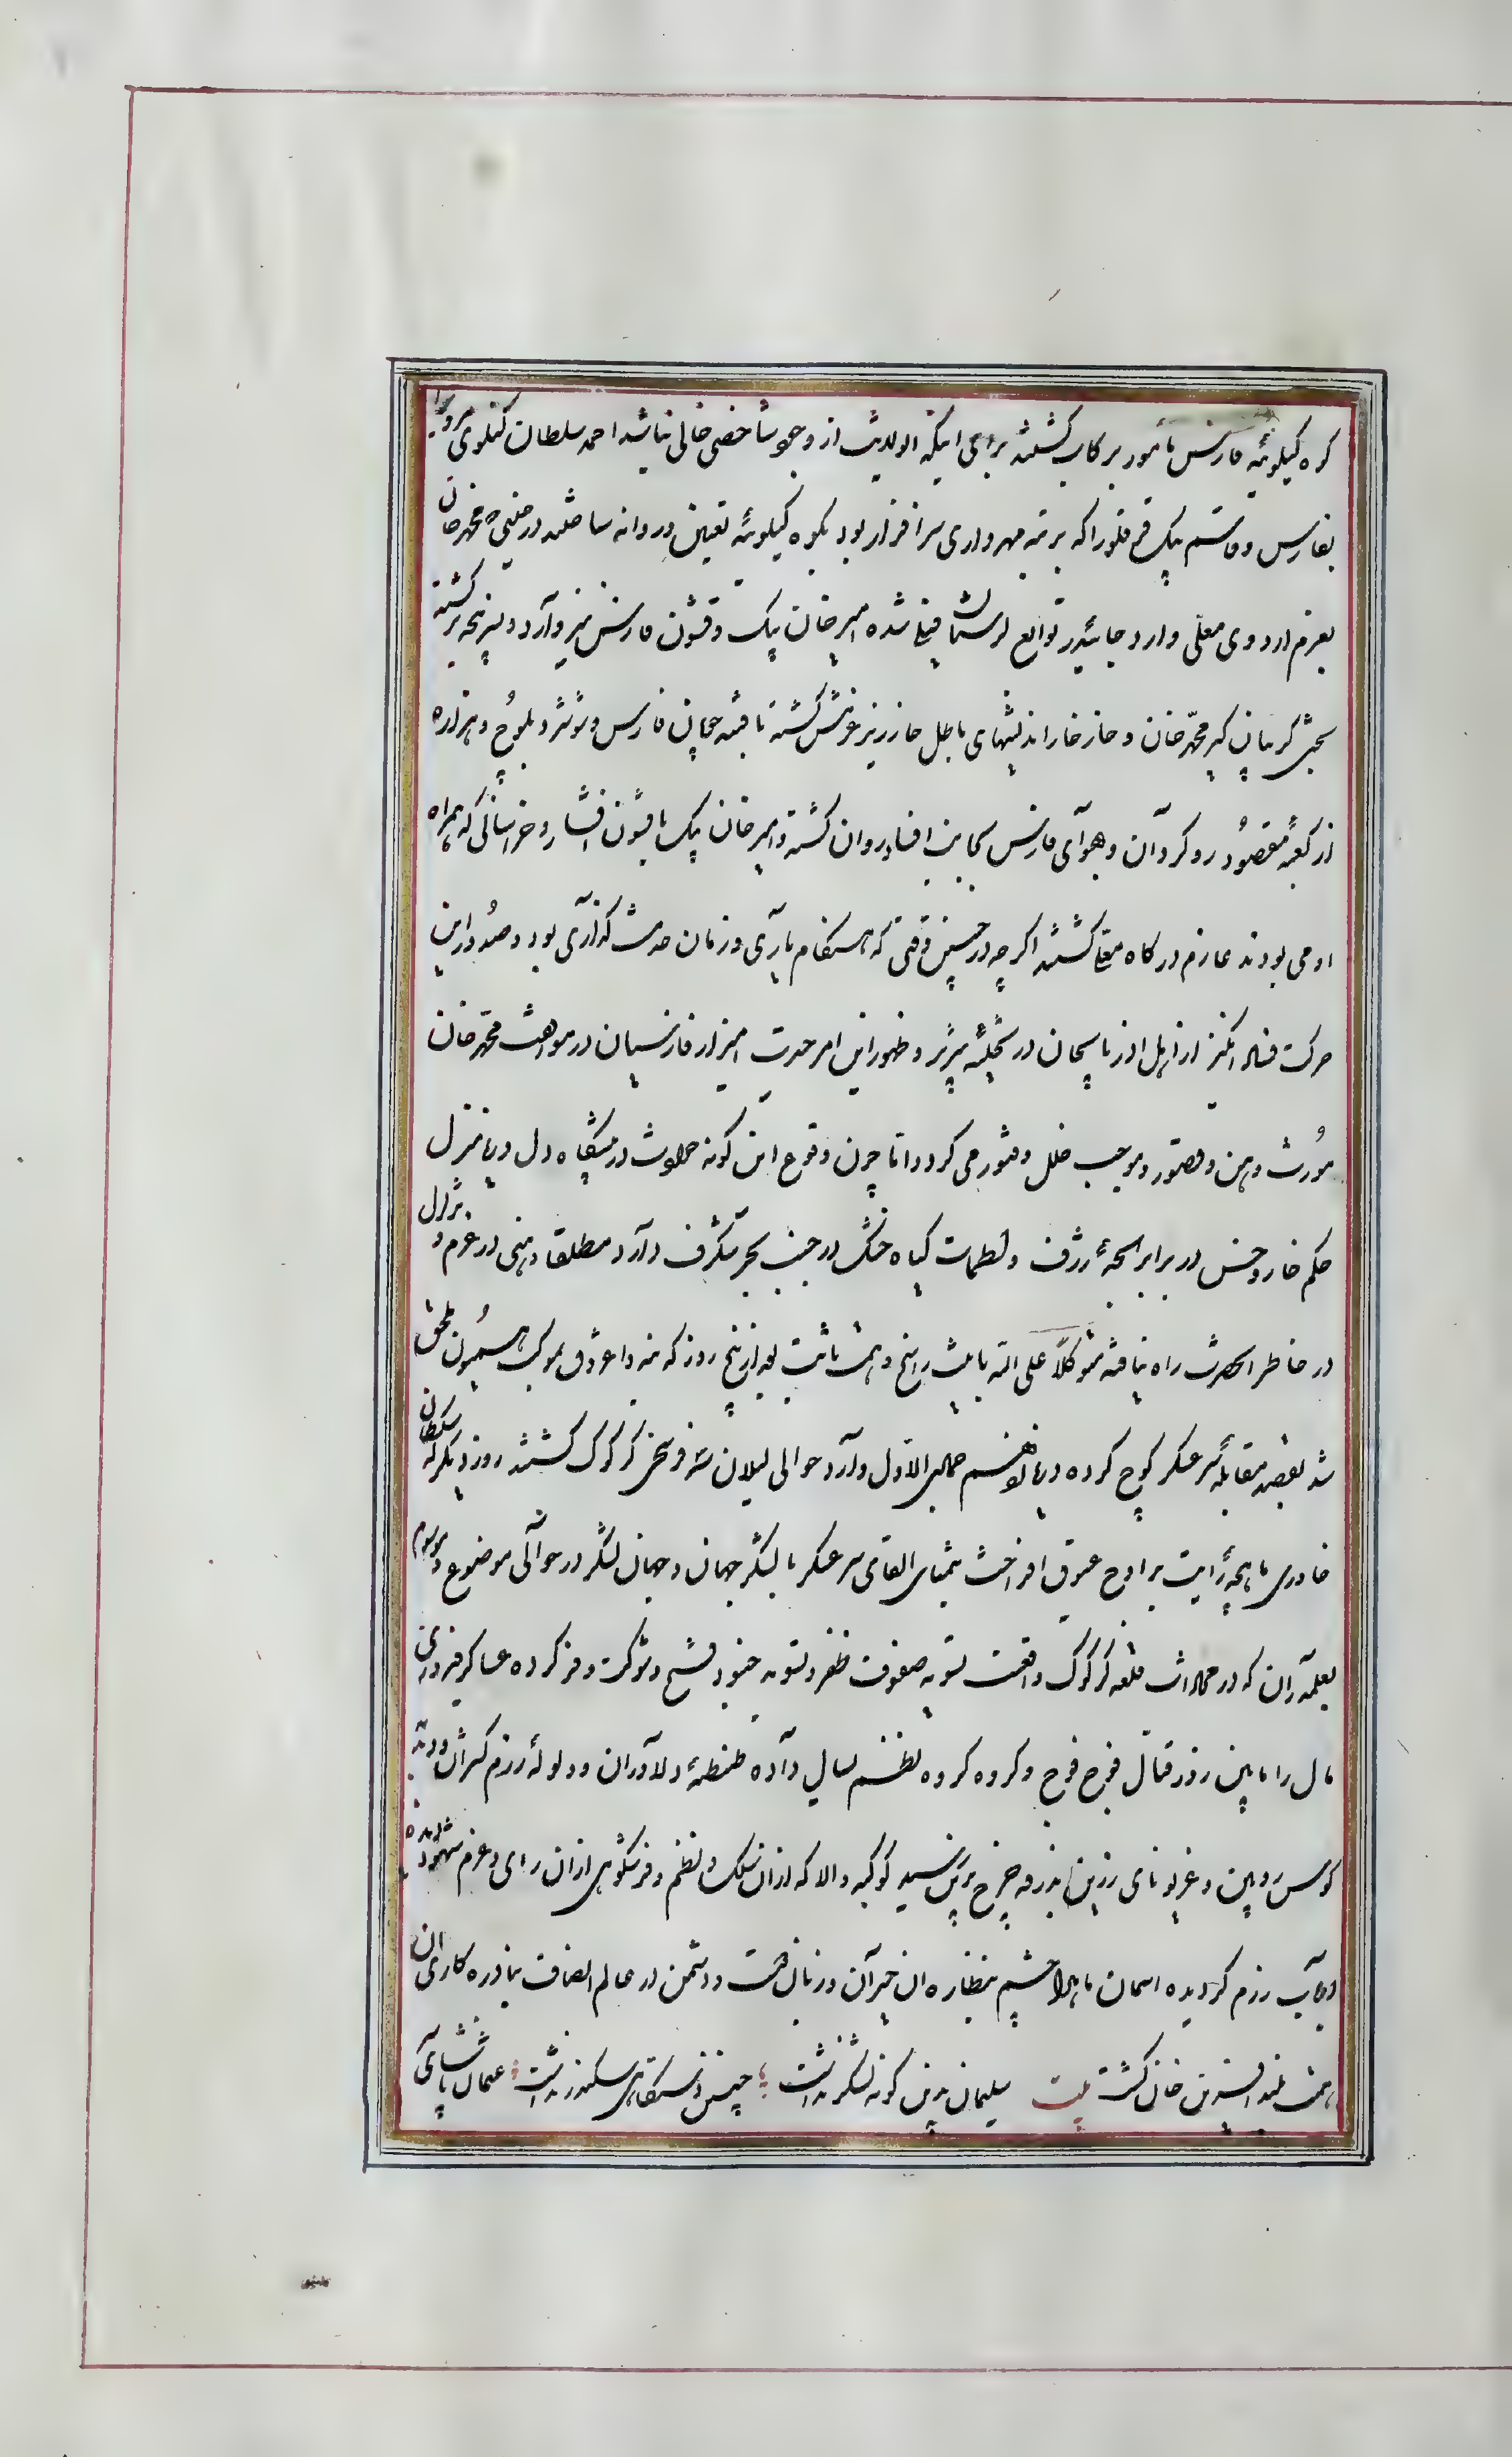 کوه کیلویه فارس مأمور برکاب گشتند برای اینکه الولایت از وجود شاخصی خالی نباشد احمد سلطان کنکلوی مرویرا
بفارس و قاسم بیک قرقلو را که برتبه مهرداری سرافراز بود بکوه کیلویه تعیین و روانه ساختند در حینی که محمد خان
بعزم اردوی معلی وارد جایدر توابع لرستان فیلی شده امیر خان بیک و قشون فارس نیز وارد و نیز نجه برگشته
کریبان کیر محمد خان و خار خار اندیشهای باطل خار ریز عزمش گشته باتفاق فارس و شوشتر و بلوچ و هزاره
از کعبه مقصود رو کردان و بهوای فارس بجانب افساد روان گشته و امیر خان بیک با قشون افشار و خراسانی که همراه
او می بودند عازم درگاه معلی گشتند اگر چه در چنین وقتی که هنگام یاری و زمان خدمت گذاری بود صدور این
حرکت فساد انگیز از اهل اذربایجان در تخلیه تبریز و ظهور این امر حیرت انگیز از فارسیان در موافقت محمد خان
مورث وهن و قصور و موجب خلل و فتور می گردد اما چون وقوع این گونه حوادث در پیشگاه دل دریا منزل
حکم خار و خس در برابر لجه ژرف و لطمات گیاه خشک در جنب بحر شگرف دارد مطلقا وهنی در عزم و تزلزل
در خاطر انحضرت راه نیافته متوکلاً علی الله با نیت راسخ و همت ثابت بعد از پنج روز که بنه و اغروق بموکب همیون ملحق
شد بقصد مقابله سرعسکر کوچ کرده دریا نهم جمادی الاول وارد حوالی لیلان سه فرسخی کرکوک گشتند روز دیگر که سلطان
خاوری ماهچه رایت بر اوج عیوق افراخت بتمنای القای سرعسکر با لشگر جهان و جهان لشگر در حوالی موضوع موسوم
بعلمداران که در محاذات قلعه کرکوک واقعست تسویه صفوف ظفر و تسویه جنود فتح و شوکت و فر کرده عساکر فیروزی
مال را بایین روز قتال فوج فوج و گروه گروه نظم یسال داده طنطنه دلاوران و ولوله رزم گستران و دبدبه
کوس رویین و غریو نای زرین بذروه چرخ برین رسید کوکبه والا که از ان سلک و نظم و فر شکوهی از ان رای و عزم مشهود
داب رزم گردیده اسمان با هزار چشم بنظاره ان حیران و زبان دوست و دشمن در عالم انصاف بنادره کاری ان
همت بلند افسرین خان گشت بیت سلیمان بدین گونه لشگر نداشت چنین دستگاهی سکندر نداشت عثمان پاشای